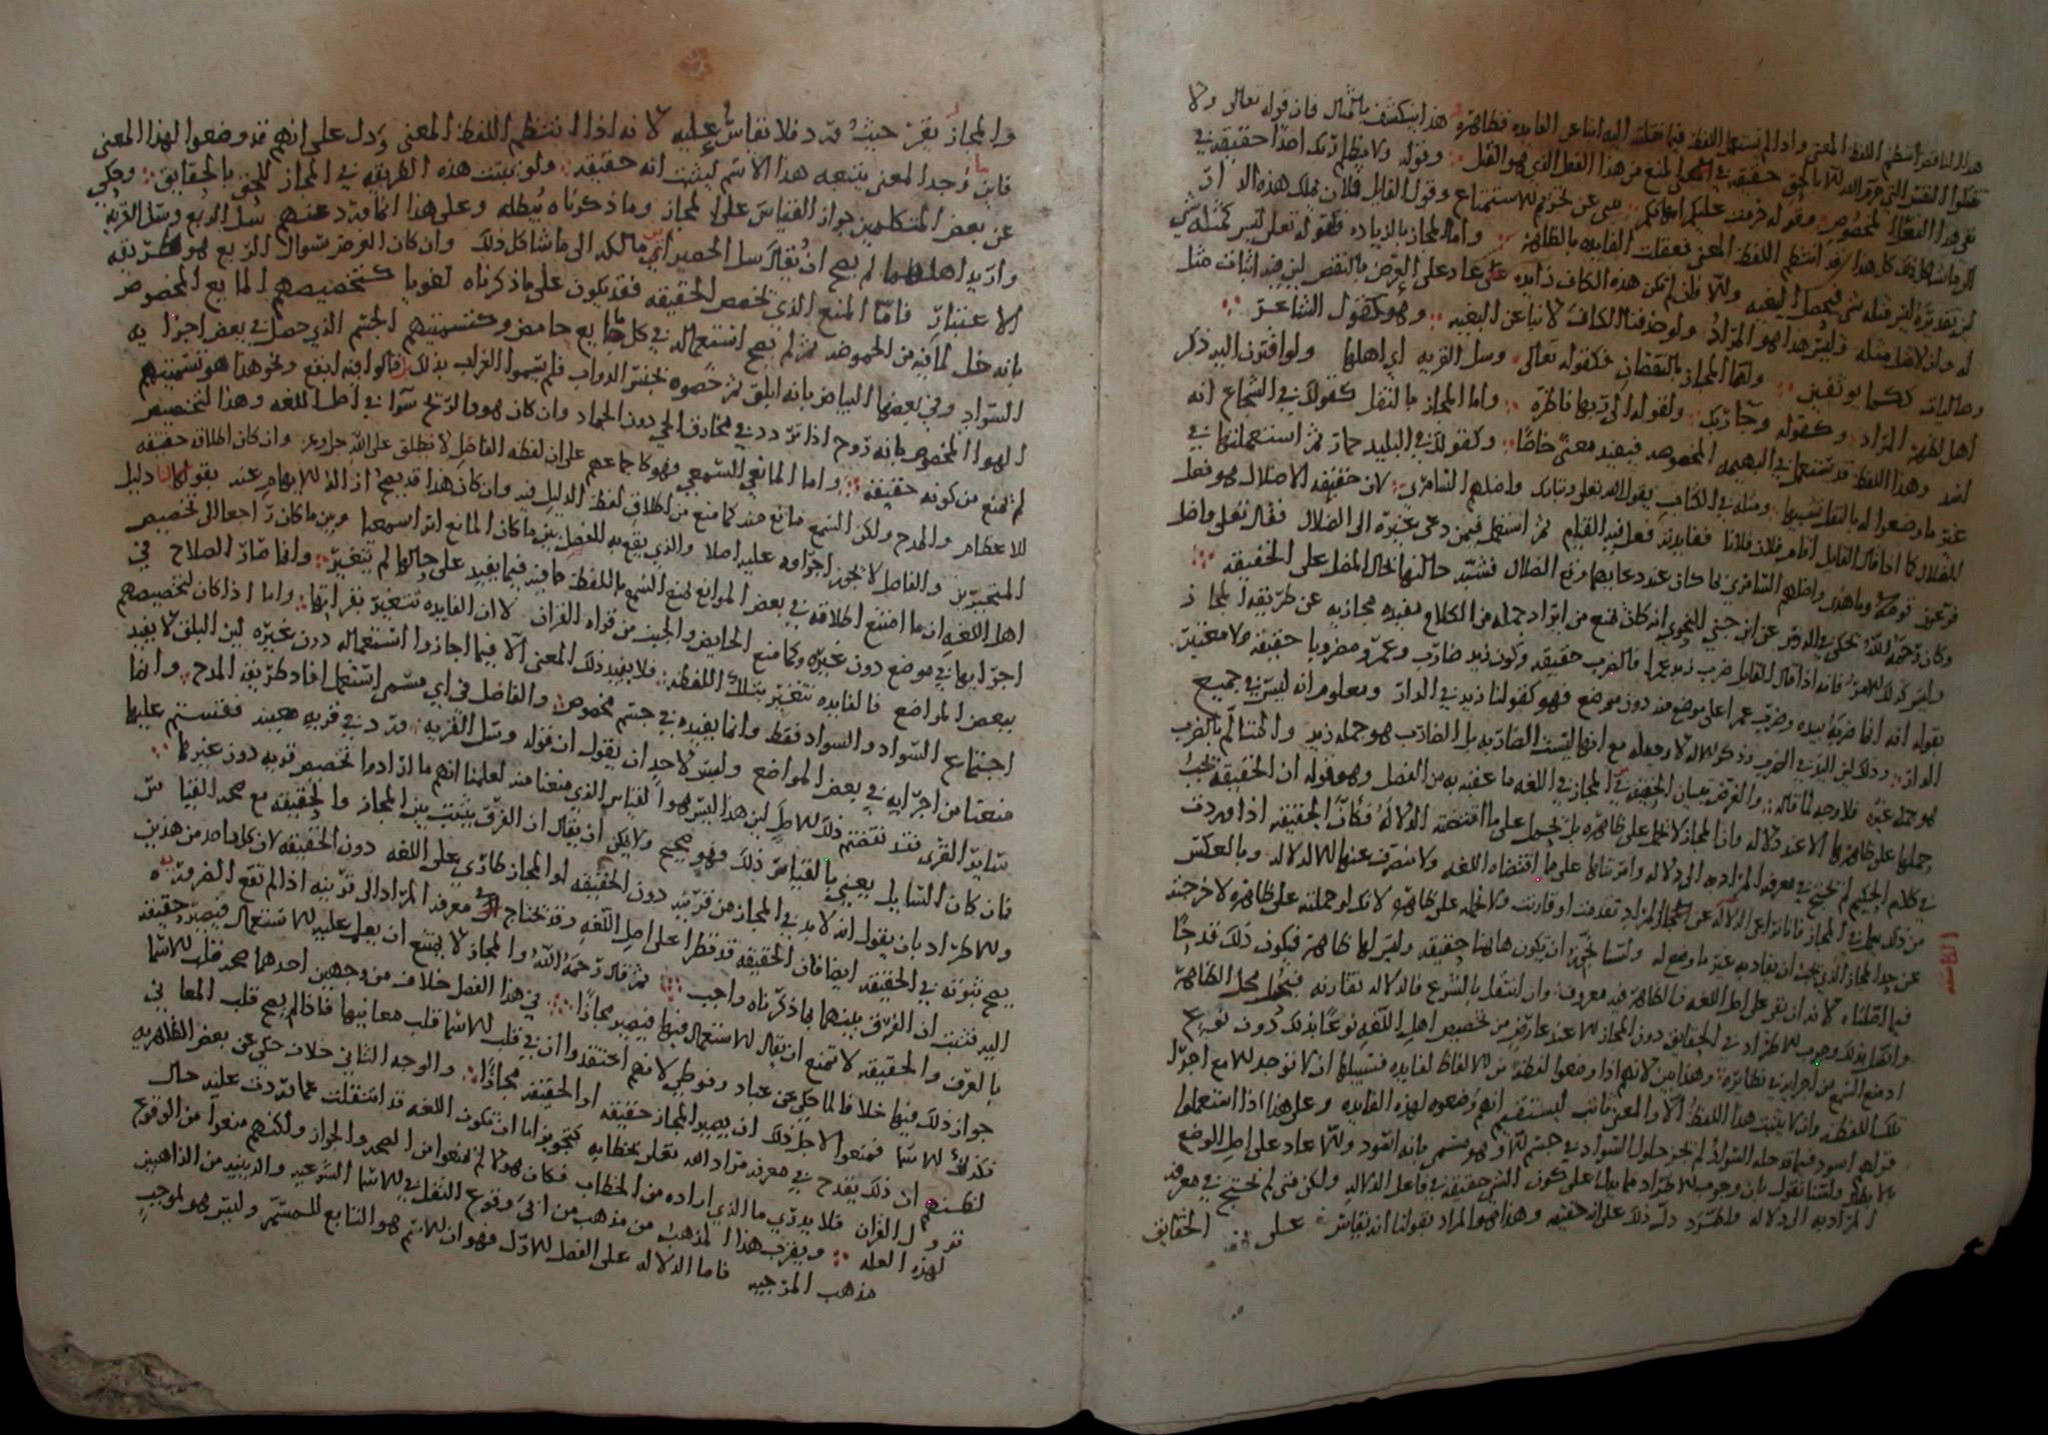 هذا انتظم اللفظ المعنى واذا لم تستعمل اللفظ فيما نقلته اليه انبا عن الفايده فظاهره هذا ينكشف بالمثال فان قوله تعالى ولا
تقتلوا النفس التي حرم الله الا بالحق حقيقه في المنع من هذا الفعل الذي هو القتل وقوله ولا يظلم ربك احدا حقيقه في
نفي هذا الفعل المخصوص وقوله حرمت عليكم امهاتكم ينبي عن تحريم الاستمتاع وقول القايل فلان يملك هذه الدار
الى ما شاكل ذلك كل هذا قد انتظم اللفظ المعنى فعقلت الفايده بالظاهر واما المجاز بالزياده فكقوله تعالى ليس كمثله شي
لان تقديره ليس مثله شي فيحصل البغيه ولو لم تكن هذه الكاف زايده عاد على الغرض بالنقض لان فيه اثبات مثل
له وان لا مثل مثله وليس هذا هو المراد ولو حذفنا الكاف لانبا عن البغيه وهو كقول الشاعر
وصاليات ككما يوثفين واما المجاز بالنقصان فكقوله تعالى وسل القريه اي اهلها ولو اقترن اليه ذكر
اهل لفهم المراد وكقوله وجا ربك وكقوله الى ربها ناظره واما المجاز بالنقل كقولك في الشجاع انه
اسد وهذا اللفظ قد يستعمل في البهيمه المخصوصه فيفيد معنى خاصا وكقولك في البليد حمار ثم استعملتها في
غير ما وضعوا له بالنقل تشبيها ومثله في الكتاب يقول الله تعالى وتبارك واضلهم السامري لان حقيقه الاضلال هو فعل
الضلال كما اذا قال القايل اقام فلان فلانا ففايدته فعل فيه القيام ثم استعمل فيمن دعى غيره الى الضلال فقال تعالى واضل
فرعون قومه وما هدى واضلهم السامري لما كان عند دعايهما وقع الضلال فشبه حالتهما بحال المضل على الحقيقه
وكان رحمه الله يحكي في الدرس عن ابن جني النحوي انه كان يمنع من ايراد جمله من الكلام مفيده مجازيه عن طريقه المجاز
وليس كذلك الامر فانه اذا قال القايل ضرب زيد عمرا فالضرب حقيقه وكون زيد ضارب وعمرو مضروبا حقيقه ولا معتبر
بقوله انه انما ضربه بيده وضرب عمرا على موضع منه دون موضع فهو كقولنا زيد في الدار ومعلوم انه ليس في جميع
الدار وذلك لان اليد في الضرب وذكر الاله لا وجه له مع انها ليست الضاربه بل الضارب هو جمله زيد والمتالم بالضرب
هو جمله غيره فلا وجه لما قاله والغرض بتبيان الحقيقه في المجاز في اللغه ما عقبه به من الفصل وهو قوله ان الحقيقه يجب
حملها على ظاهرها الا عند دلاله واذا المجاز لا يحمل على ظاهره بل يحمل على ما اقتضته الدلاله فكان الحقيقه اذا وردت
في كلام الحكيم لم نحتج في معرفه المراد به الى دلاله وامرناها على ما اقتضاه اللغه ولا ننصرف عنها الا لدلاله وبالعكس
من ذلك يعمل في المجاز فانا نراعي الدلاله عن المراد تقدمت او قارنت ولا نحمله على ظاهره لانك لو حملته على ظاهره لاخرجته
عن حد المجاز الذي يجب ان يفاد به غير ما وضع له ولسنا نجوز ان تكون هاهنا حقيقه وليس لها ظاهر فيكون ذلك قدحا
فيما قلناه لانه ان بقي على اصل اللغه فالظاهر فيه معروف وان انتقل بالشرع فالدلاله تقارنه فيحل محل الظاهر
وانما بذلك وجوب الاطراد في الحقايق دون المجاز الا عند عارض من تخصيص اهل اللغه نوعا بذلك دون نوع
او منع السمع من اجرايه في نظايره وهذا بين لانهم اذا وضعوا لفظه من الالفاظ لفايده فسبيلها ان لا توجد الا مع اجرا
تلك اللفظه وان لا يثبت هذا اللفظ الا والمعنى ثابت ليستقيم انهم وضعوه لهذه الفايده وعلى هذا اذا استعملوا
قولهم اسود فيما قد حله السواد لم يجز حلول السواد في جسم الا وهو مسمى بانه اسود والا عاد على اصل الوضع
بالابطال ولسنا نقول بان وجوب الاطراد مما يدل على كون الشي حقيقه في فاعل الدلاله ولكن متى لم نحتج في معرفه
المراد به الى دلاله واطرد دل ذلك على انه حقيقه وهذا هو المراد بقولنا انه يقاس على الحقايق
والمجاز يقر حيث ورد فلا يقاس عليه لانه اذا انتظم اللفظ المعنى ودل على انهم قد وضعوا لهذا المعنى
فاين ما وجد المعنى يتبعه هذا الاسم ليثبت انه حقيقه ولو ثبتت هذه الطريقه في المجاز للحق بالحقايق وحكي
عن بعض المتكلمين جواز القياس على المجاز وما ذكرناه يبطله وعلى هذا انما ورد عنهم سل الربع وسل القريه
واريد اهلهما لم يصح ان يقال سل الحصير اي مالكه الى ما شاكل ذلك وان كان الغرض سوال الربع هو طريقه
الاعتبار فاما المنع الذي يخص الحقيقه فقد يكون على ما ذكرناه لغويا كتخصيصهم المايع المخصوص
بانه خل لما فيه من الحموضه ثم لم يصح استعماله في كل مايع حامض وكتسميتهم الجسم الذي حصل في بعض اجزايه
السواد وفي بعضها البياض بانه ابلق ثم خصوه بجنس الدواب فلم يسموا الغراب بذلك قالوا فيه ابقع ونحو هذا هو تسميتهم
الهوا المخصوص بانه روح اذا تردد في مخارق الحي دون الجماد وان كان هو والريح سوا في اصل اللغه وهذا التخصيص
لم يمنع من كونه حقيقه واما المانع السمعي فهو كاجماعهم على ان لفظه الفاضل لا تطلق على الله جل وعز وان كان اطلاقه حقيقه
للاعظام والمدح ولكن السمع مانع منه كما منع من اطلاق لفظ الدليل فيه وان كان هذا قد يصح اذا زال الابهام عند بقولنا يا دليل
المتحيرين والفاضل لا يجوز اجراوه عليه اصلا والذي يقع به الفصل بين ما كان المانع امرا سمعيا وبين ما كان راجعا الى تخصيص
اهل اللغه ان ما امتنع اطلاقه في بعض المواضع لمنع السمع باللفظه فاقيه فيما يفيد على حالها لم يتغير وانما صار الصلاح في
اجرايها في موضع دون غيره وكما منع الحايض والجنب من قراه القران لا ان الفايده تتغير بقراتها واما اذا كان تخصيصهم
ببعض المواضع فالفايده تتغير بتلك اللفظه فلا يفيد ذلك المعنى الا فيما اجازوا استعماله دون غيره لان البلق لا يفيد
اجتماع السواد والسواد فقط وانما يفيده في جسم مخصوص والفاضل في اي مسمى استعمل افاد طريقه المدح وانما
منعنا من اجرايه في بعض المواضع وليس لاحد ان يقول ان قوله وسل القريه ورد في قريه معينه فقستم عليها
ساير القرى فقد نقضتم ذلك الاصل لان هذا ليس هو القياس الذي منعنا منه لعلمنا انهم ما ارادوا تخصيص قريه دون غيرها
فان كان السايل يعني بالقياس ذلك فهو صحيح ولا يمكن ان يقال ان الفرق يثبت بين المجاز والحقيقه مع صحه القياس
والاطراد بان يقول انه لا بد في المجاز من قرينه دون الحقيقه او المجاز طاري على اللغه دون الحقيقه لان كل واحد من هذين
يصح ثبوته في الحقيقه ايضا فان الحقيقه قد تطرا على اصل اللغه وقد نحتاج في معرفه المراد الى قرينه اذا لم تقع الضروره
اليه فثبت ان الفرق بينهما بما ذكرناه واجب ثم قال رحمه الله والمجاز لا يمتنع ان يغلب عليه الاستعمال فيصير حقيقه
بالعرف والحقيقه لا تمنع ان يقل الاستعمال فيها فيصير مجازا في هذا الفصل خلاف من وجهين احدهما صحه قلب الاسما
جواز ذلك فيها خلافا لما حكي عن عباد رفوطي لانهم اعتقدوا ان في قلب الاسما قلب معانيها فاذا لم يصح قلب المعاني
فكذلك الاسما فمنعوا لاجل ذلك ان يصير المجاز حقيقه او الحقيقه مجازا والوجه الثاني خلاف حكي عن بعض الظاهريه
لكنهم ان ذلك يقدح في معرفه مراد الله تعالى بخطابه كتجويز اما ان تكون اللغه قد انتقلت عما وردت عليه حال
نزول القران فلا يدرى ما الذي اراده من الخطاب فكان هولا لم يمنعوا من الصحه والجواز ولكنهم منعوا من الوقوع
لهذه العله ويقرب هذا المذهب من مذهب من انكر وقوع النقل في الاسما الشرعيه والدينيه من الذاهبين
مذهب المرجيه فاما الدلاله على الفصل الاول فهو ان الاسم هو التابع للمسمى وليس هو لموجب